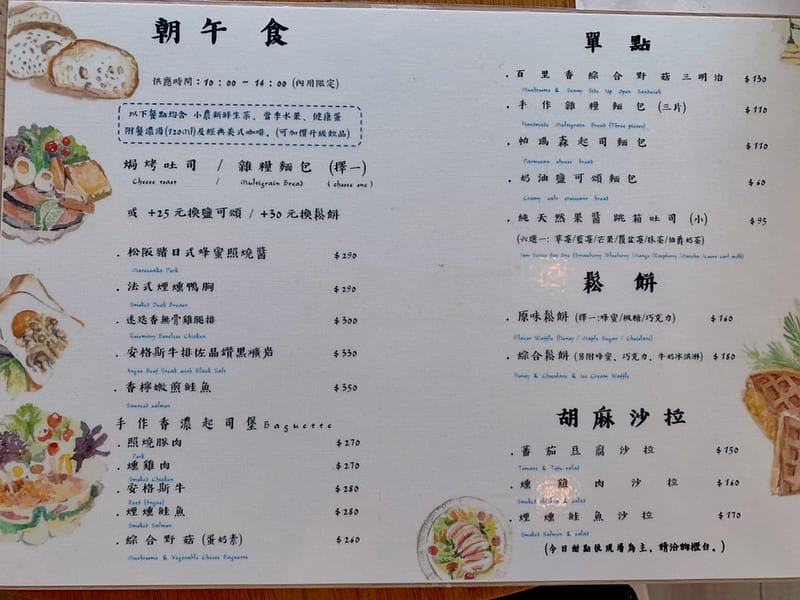 朝午食
供應時間：10：00～14：00 (內用限定)
以下餐點均含 小農新鮮生菜、當季水果、健康蛋
附餐濃湯(120ml)及經典美式咖啡。(可加價升級飲品)
焗烤吐司 / 雜糧麵包 (擇一)
Cheese toast / Multigrain Bread (choose one)
或 +25元換鹽可頌 / +30元換鬆餅
．松阪豬日式蜂蜜照燒醬 $290
Matsusaka Pork
．法式煙燻鴨胸 $290
Smoked Duck Breast
．迷迭香無骨雞腿排 $300
Rosemary Boneless Chicken
．安格斯牛排佐晶鑽黑礦岩 $330
Angus Beef Steak with Black Salt
．香檸嫩煎鮭魚 $350
Sauteed salmon
手作香濃起司堡Baguette
．照燒豚肉 $270
Pork
．燻雞肉 $270
Smoked Chicken
．安格斯牛 $280
Beef (Angus)
．煙燻鮭魚 $280
Smoked Salmon
．綜合野菇 (蛋奶素) $260
Mushrooms & Vegetable Cheese Baguette
單點
．百里香綜合野菇三明治 $130
Mushrooms & Sunny Side Up Open Sandwich
．手作雜糧麵包 (三片) $110
Handmade Multigrain Bread (Three pieces)
．帕瑪森起司麵包 $110
Parmesan cheese bread
．奶油鹽可頌麵包 $60
Creamy salt croissant bread
．純天然果醬 跳箱吐司 (小) $95
(六選一：草莓/藍莓/芒果/覆盆莓/抹茶/伯爵奶茶)
鬆餅
．原味鬆餅 (擇一:蜂蜜/楓糖/巧克力) $160
Flavor Waffle (Honey / Maple Sugar / Chocolate)
．綜合鬆餅 (另附蜂蜜、巧克力、牛奶冰淇淋) $180
Honey & Chocolate & Ice Cream Waffle
胡麻沙拉
．蕃茄豆腐沙拉 $150
Tomato & Tofu salad
．燻雞肉沙拉 $160
Smoked chicken & salad
．煙燻鮭魚沙拉 $170
Smoked Salmon & salad
(今日甜點依現場為主，請洽詢櫃台。)